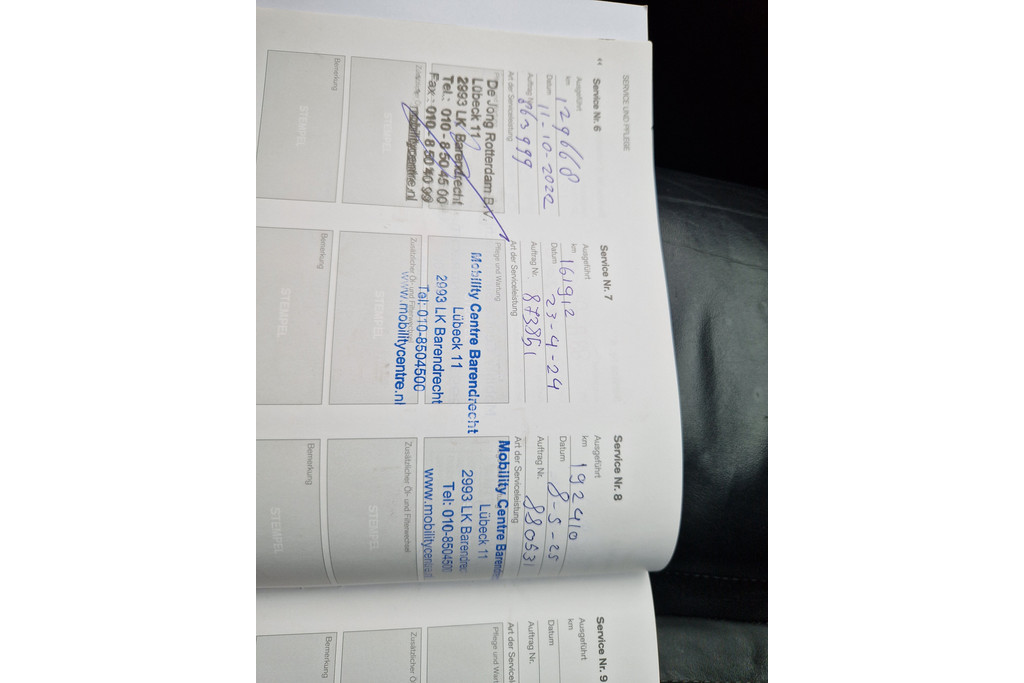 SERVICE UND PFLEGE
Service Nr. 6
Ausgeführt
km 129668
Datum 11-10-2022
Auftrag 863999
Art der Serviceleistung
De Jong Rotterdam B.V.
Lübeck 11
2993 LK Barendrecht
Tel.: 010 - 8 50 45 00
Fax : 010 - 8 50 40 99
mobilitycentre.nl
STEMPEL
Bemerkung
STEMPEL
Service Nr. 7
Ausgeführt
km 161912
Datum 23-4-24
Auftrag Nr. 873851
Art der Serviceleistung
Pflege und Wartung
Mobility Centre Barendrecht
Lübeck 11
2993 LK Barendrecht
Tel: 010-8504500
www.mobilitycentre.nl
Zusätzlicher Öl- und Filterwechsel
STEMPEL
Bemerkung
STEMPEL
Service Nr. 8
Ausgeführt
km 192410
Datum 8-5-25
Auftrag Nr. 880531
Art der Serviceleistung
Mobility Centre Baren
Lübeck 11
2993 LK Barendrec
Tel: 010-8504500
www.mobilitycentre.nl
Zusätzlicher Öl- und Filterwechsel
STEMPEL
Bemerkung
STEMPEL
Service Nr. 9
Ausgeführt
km
Datum
Auftrag Nr.
Art der Servicel
Pflege und Wart
Zusätzlicher Ö
Bemerkung